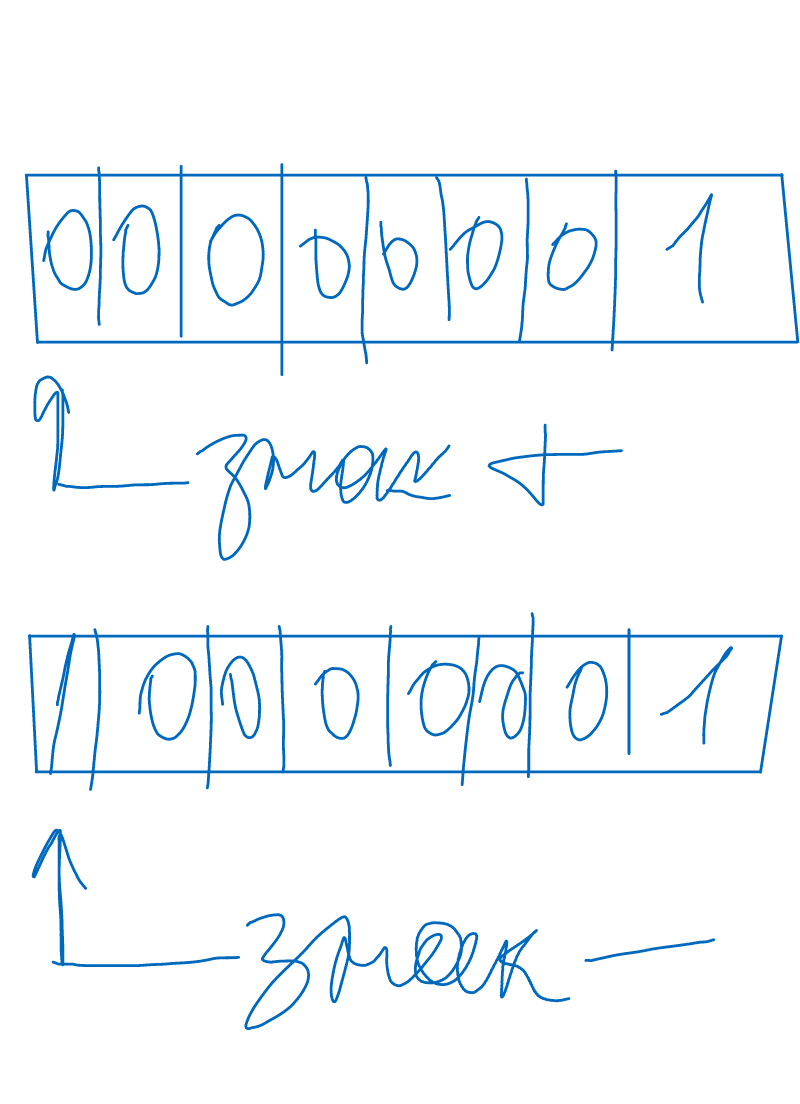 0 0 0 0 0 0 0 1
знак +
1 0 0 0 0 0 0 1
знак —